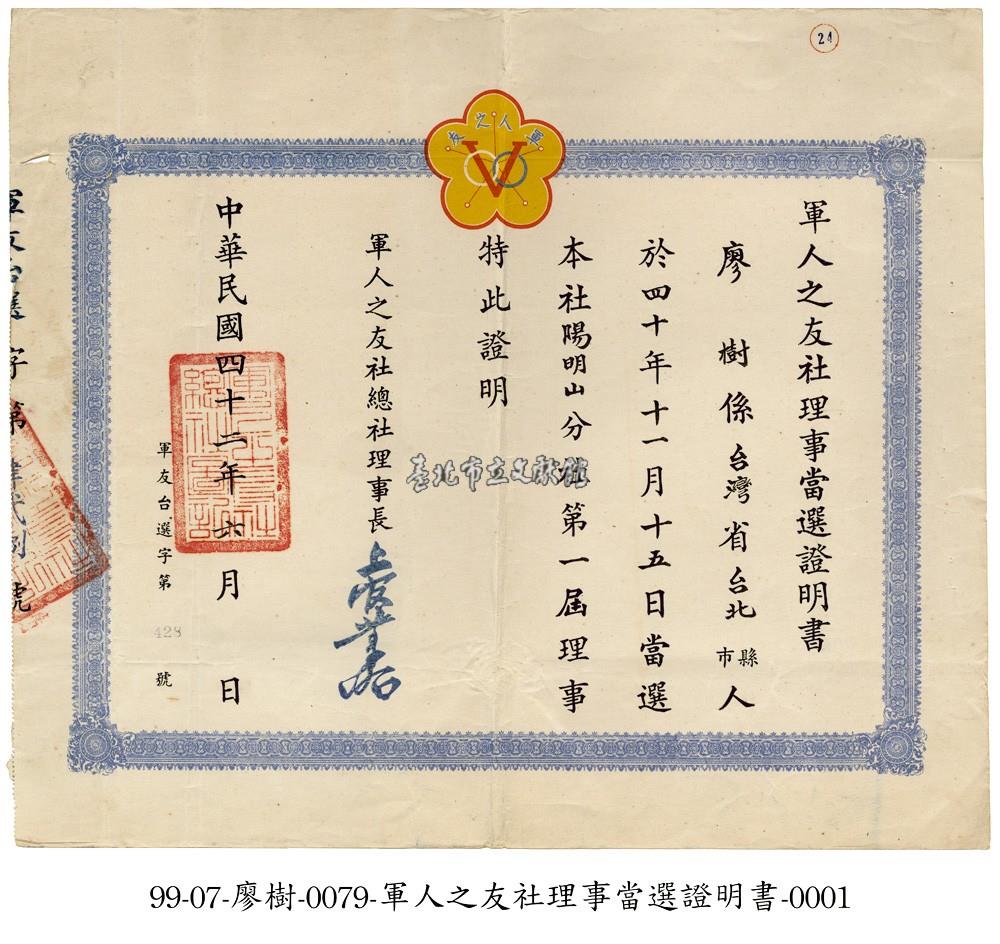 24
軍人之友
V
軍人之友社理事當選證明書
廖樹係台灣省台北縣市人
於四十年十一月十五日當選
本社陽明山分社第一屆理事
特此證明
軍人之友社總社理事長
上官業佑
中華民國四十二年六月 日
軍友台選字第 428 號
字第 號
臺北市立文獻館
99-07-廖樹-0079-軍人之友社理事當選證明書-0001